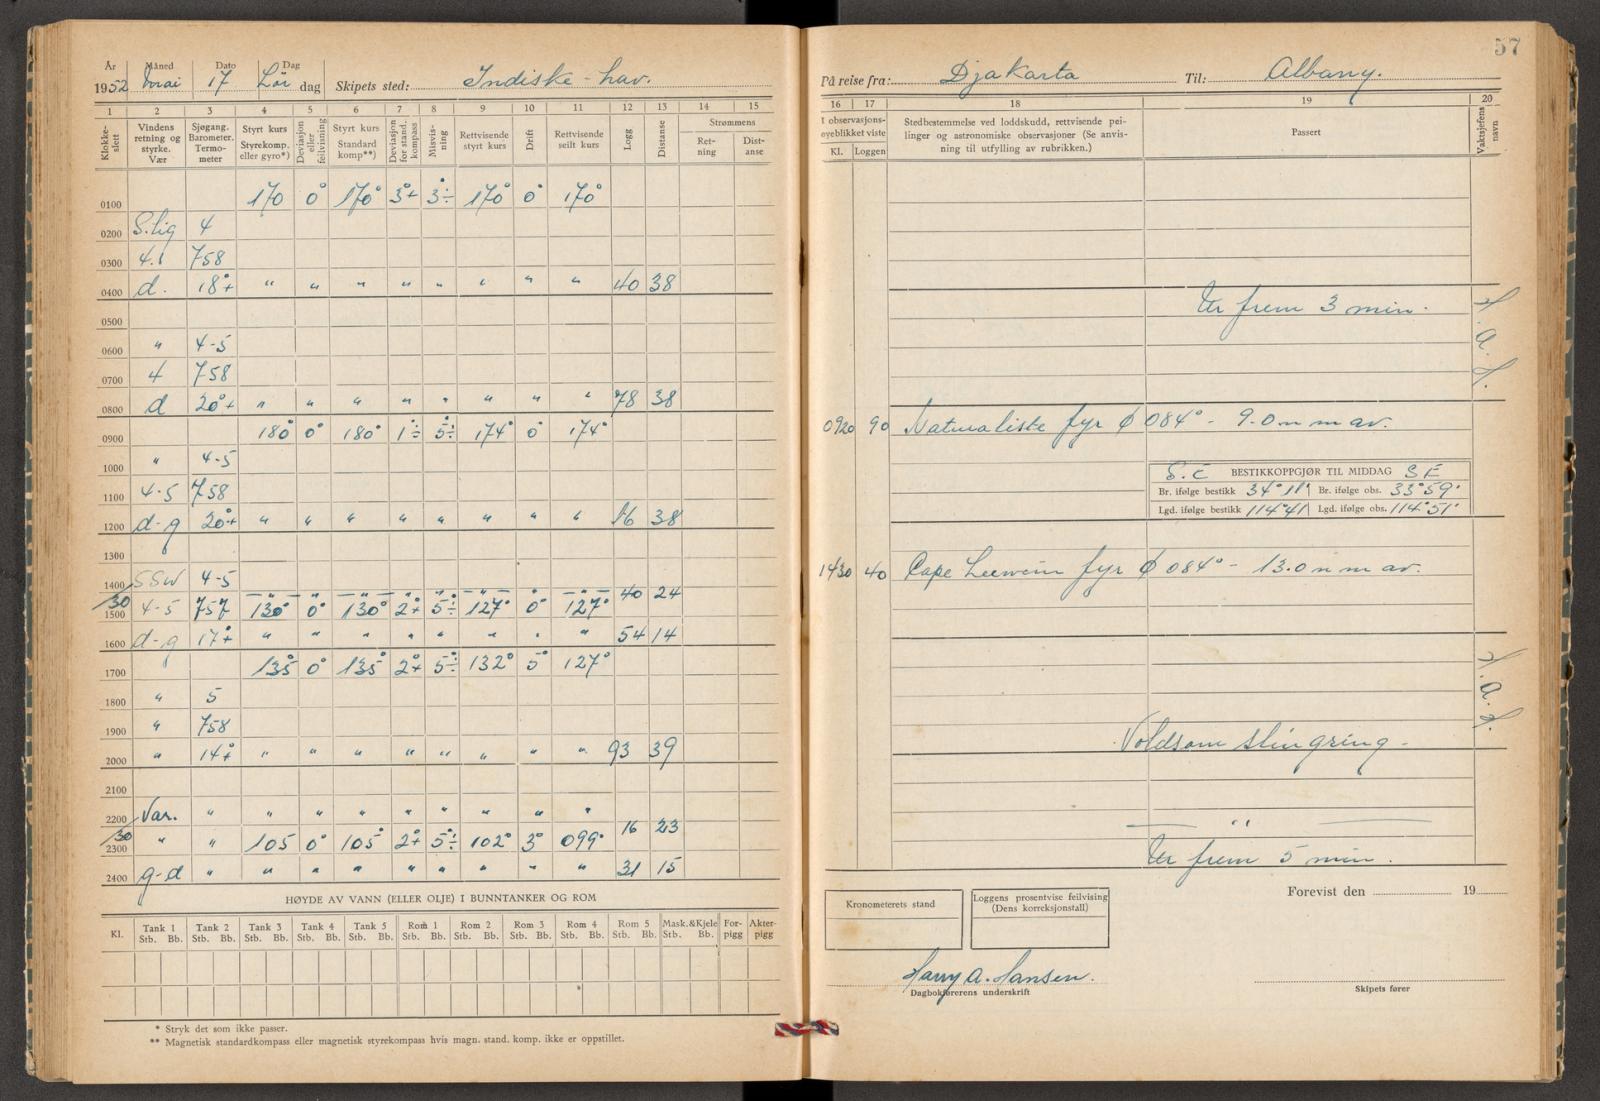 57
År Måned Dato Dag
1952 Mai 17 Lør dag Skipets sted: Indiske-hav.
1 2 3 4 5 6 7 8 9 10 11 12 13 14 15
Klokke-slett
Vindens retning og styrke. Vær
Sjøgang. Barometer. Termo-meter
Styrt kurs Styrekomp. eller gyro*)
Deviasjon eller feilvisning
Styrt kurs Standard komp**)
Deviasjon for stand. kompass
Misvis-ning
Rettvisende styrt kurs
Drift
Rettvisende seilt kurs
Logg
Distanse
Strømmens
Ret-ning
Dist-anse
0100 170 0° 170° 3°+ 3°÷ 170° 0° 170°
0200 S.lig 4
0300 4. 758
0400 d. 18°+ " " " " " " " " 40 38
0500
0600 " 4-5
0700 4 758
0800 d 20°+ " " " " " " " " 78 38
0900 180° 0° 180° 1°÷ 5°÷ 174° 0° 174°
1000 " 4-5
1100 4-5 758
1200 d-g 20°+ " " " " " " " " 16 38
1300
1400 SSW 4-5 " " " " " " " " 40 24
30
1500 4-5 757 130° 0° 130° 2°+ 5°÷ 127° 0° 127°
1600 d-g 17°+ " " " " " " " " 54 14
1700 135° 0° 135° 2°+ 5°÷ 132° 5° 127°
1800 " 5
1900 " 758
2000 " 14°+ " " " " " " " " 93 39
2100
2200 Var. " " " " " " " " " 16 23
30
2300 " " 105 0° 105° 2°+ 5°÷ 102° 3° 099°
2400 g-d " " " " " " " " " 31 15
HØYDE AV VANN (ELLER OLJE) I BUNNTANKER OG ROM
Kl. Tank 1 Tank 2 Tank 3 Tank 4 Tank 5 Rom 1 Rom 2 Rom 3 Rom 4 Rom 5 Mask.&Kjele For-pigg Akter-pigg
Stb. Bb. Stb. Bb. Stb. Bb. Stb. Bb. Stb. Bb. Stb. Bb. Stb. Bb. Stb. Bb. Stb. Bb. Stb. Bb. Stb. Bb.
* Stryk det som ikke passer.
** Magnetisk standardkompass eller magnetisk styrekompass hvis magn. stand. komp. ikke er oppstillet.
På reise fra: Djakarta Til: Albany.
16 17 18 19 20
I observasjons-øyeblikket viste
Kl. Loggen
Stedbestemmelse ved loddskudd, rettvisende pei-
linger og astronomiske observasjoner (Se anvis-
ning til utfylling av rubrikken.)
Passert
Vaktsjefens navn
Ur frem 3 min.
H.a.H.
0920 90 Naturaliste fyr ϕ 084° - 9.0 n m av.
S.E BESTIKKOPPGJØR TIL MIDDAG SE
Br. ifølge bestikk 34°11' Br. ifølge obs. 33°59'
Lgd. ifølge bestikk 114°41' Lgd. ifølge obs. 114°51'
1430 40 Cape Leewein fyr ϕ 084° - 13.0 n m av.
H.a.H.
Voldsom slingring -
"
Ur frem 5 min.
Kronometerets stand
Loggens prosentvise feilvising
(Dens korreksjonstall)
Forevist den 19
Harry A. Hansen.
Dagbokførerens underskrift
Skipets fører